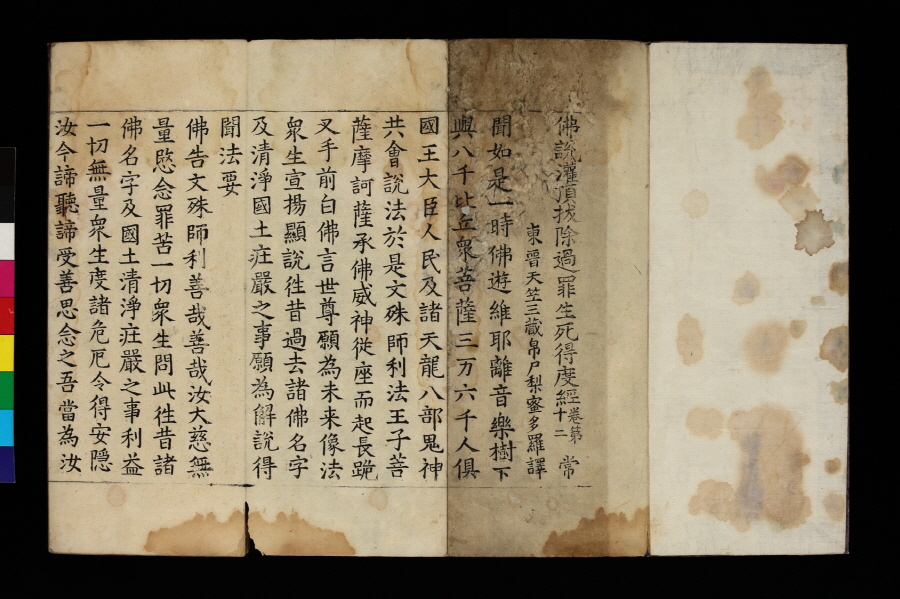 佛說灌頂拔除過罪生死得度經卷第十二 常
東晉天竺三藏帛尸梨蜜多羅譯
聞如是一時佛遊維耶離音樂樹下
與八千比丘衆菩薩三万六千人俱
國王大臣人民及諸天龍八部鬼神
共會說法於是文殊師利法王子菩
薩摩訶薩承佛威神從座而起長跪
叉手前白佛言世尊願為未来像法
衆生宣揚顯說徃昔過去諸佛名字
及清淨國土疘嚴之事願為解說得
聞法要
佛告文殊師利善哉善哉汝大慈無
量愍念罪苦一切衆生問此徃昔諸
佛名字及國土清淨疘嚴之事利益
一切無量衆生度諸危厄令得安隱
汝今諦聽諦受善思念之吾當為汝